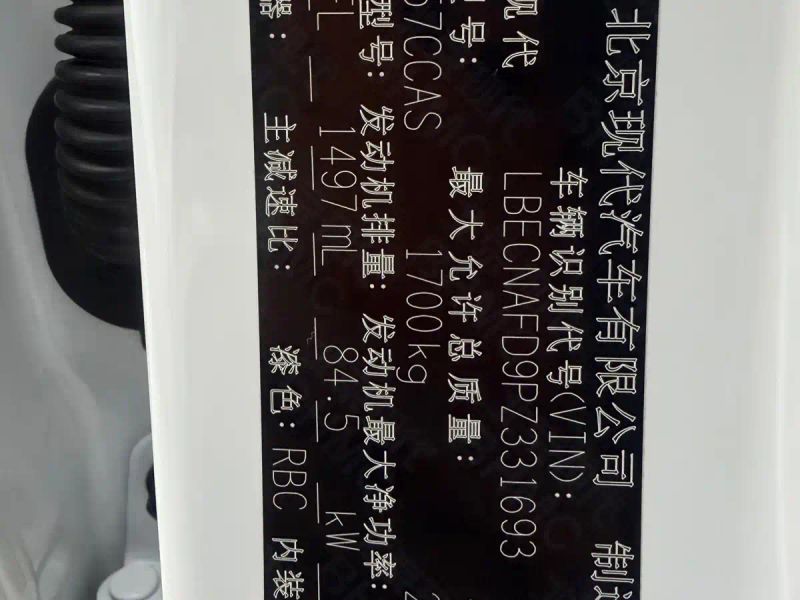 北京现代汽车有限公司 制造
现代 车辆识别代号(VIN):
LBECNAFD9PZ331693
型号: 最大允许总质量:
57CCAS 1700kg
型号: 发动机排量: 发动机最大净功率:
1497mL 84.5 kW
器: 主减速比: 漆色: RBC 内装